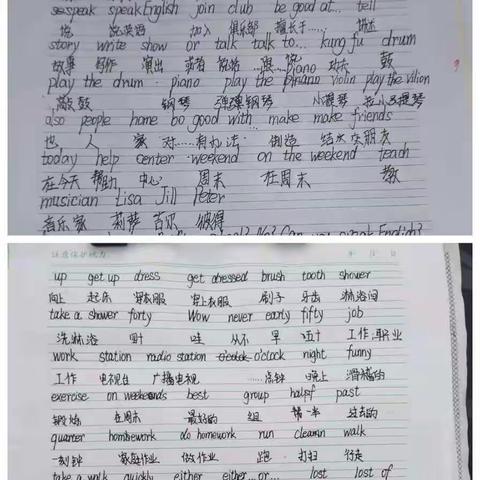 speak speak English join club be good at... tell
说 说英语 加入 俱乐部 擅长于...... 讲述
story write show or talk talk to... kung fu drum
故事 写作 演出 或者 说话 跟...说 功夫 鼓
play the drum piano play the piano violin play the vilion
敲鼓 钢琴 弹钢琴 小提琴 拉小提琴
also people home bo good with... make make friends
也 人 家 对......有办法 制造 结交朋友
today help center weekend on the weekend teach
在今天 帮助 中心 周末 在周末 教
musician Lisa Jill Peter
音乐家 莉萨 吉尔 彼得
Can you speak English?
up get up dress get dressed brush tooth shower
向上 起床 穿衣服 穿上衣服 刷子 牙齿 淋浴间
take a shower forty Wow never early fifty job
洗淋浴 四十 哇 从不 早 五十 工作,职业
work station radio station o'clock night funny
工作 电视台 广播电视 ......点钟 晚上 滑稽的
exercise on weekends best group half past
锻炼 在周末 最好的 组 一半 过去的
quarter homework do homework run clean walk
一刻钟 家庭作业 做作业 跑 打扫 行走
take a walk quickly either either...or... lost lost of